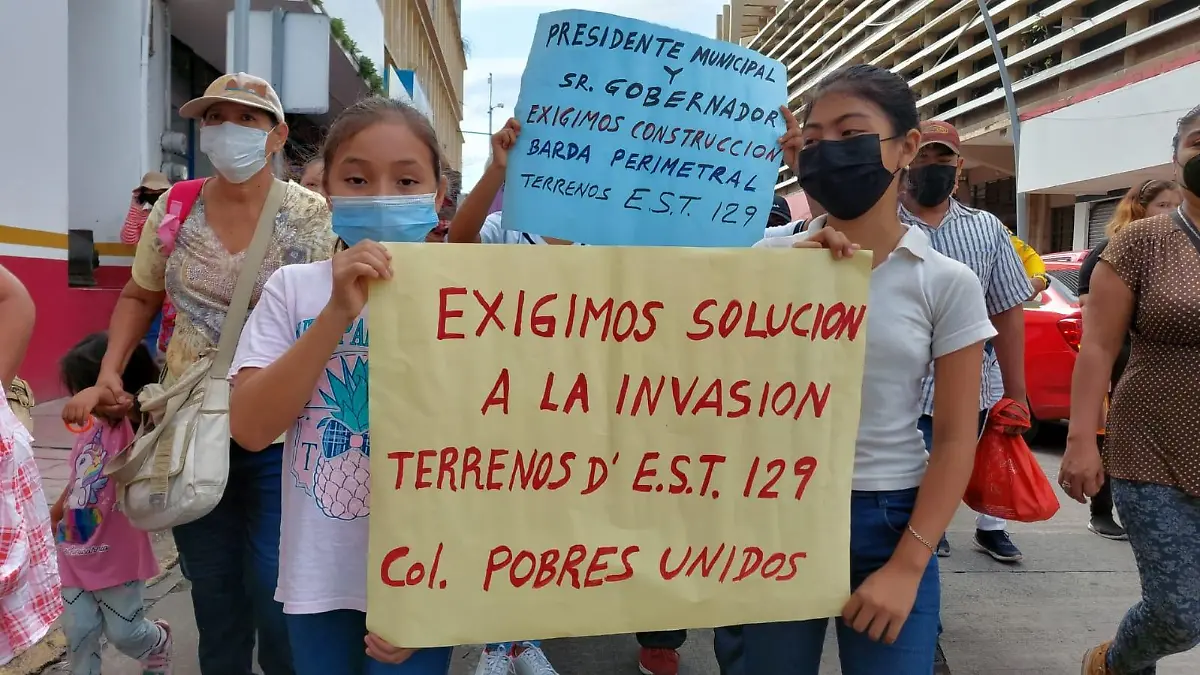 PRESIDENTE MUNICIPAL
Y
SR. GOBERNADOR
EXIGIMOS CONSTRUCCION
BARDA PERIMETRAL
TERRENOS E.S.T. 129
EXIGIMOS SOLUCION
A LA INVASION
TERRENOS D' E.S.T. 129
Col. POBRES UNIDOS